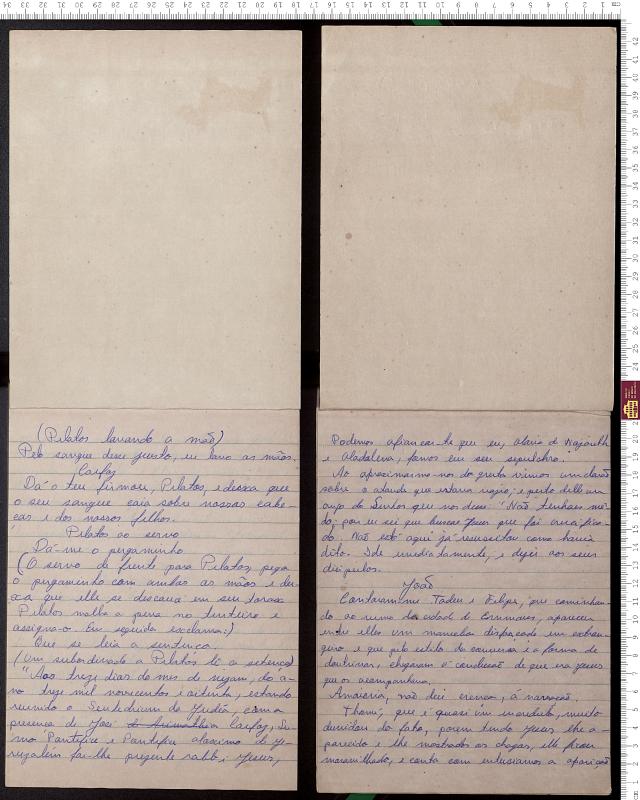 (Pilatos lavando a mão)
Pelo sangue desse justo, eu lavo as mãos.
Caifaz
Dá-o teu firman, Pilatos, e deixa que
o seu sangue caia sobre nossas cabe-
ças e dos nossos filhos.
Pilatos ao servo
Dá-me o pergaminho
(O servo de frente para Pilatos, pega
o pergaminho com ambas as mãos e dei-
xa que elle se descanse em seu torax
Pilatos molha a pena no tinteiro e
assigna-o. Em seguida exclama:)
Que se leia a sentença.
(Um subordinado a Pilatos lê a setença)
"Aos treze dias do mes de
no treze mil novecentos e oitenta, estando
reunido o Senhedrium de Judéa, com a
presença de José de Arimathea Caifaz, Su-
mo Pontifice e Pontifice Maximo de Je-
ruzalém foi-lhe presente rabbi Yesus,
Podemos afiançar-te que eu, Maria de Nazareth
e Madalena, fomos em seu sepulchro.
Ao aproximarmo-nos da gruta vimos um clarão
sobre o ataude que estava vazio; e perto delle um
anjo do Senhor que nos disse: "Não tenhaes me-
do; pois eu sei que buscaes Yesus que foi crucifica-
do. Não está aqui já resuscitou como havia
dito. Ide imediatamente, e dizei aos seus
discipulos.
João
Contaram-me Tadeu e Felipe, que caminhan-
do ao rumo da cidade de Emmaus, appareceu
entre elles um mancebo disfarçado em extran-
geiro, e que pelo estilo da conversa e a forma de
doutrinar, chegaram á conclusão de que era Yesus
que os acompanhava.
não dei crença, á narração.
Thomé, que é quasi um incredulo, muito
duvidou do fato, porem tendo Yesus lhe a-
parecido e lhe mostrado as chagas, elle ficou
maravilhado, e conta com entusiasmo a aparição